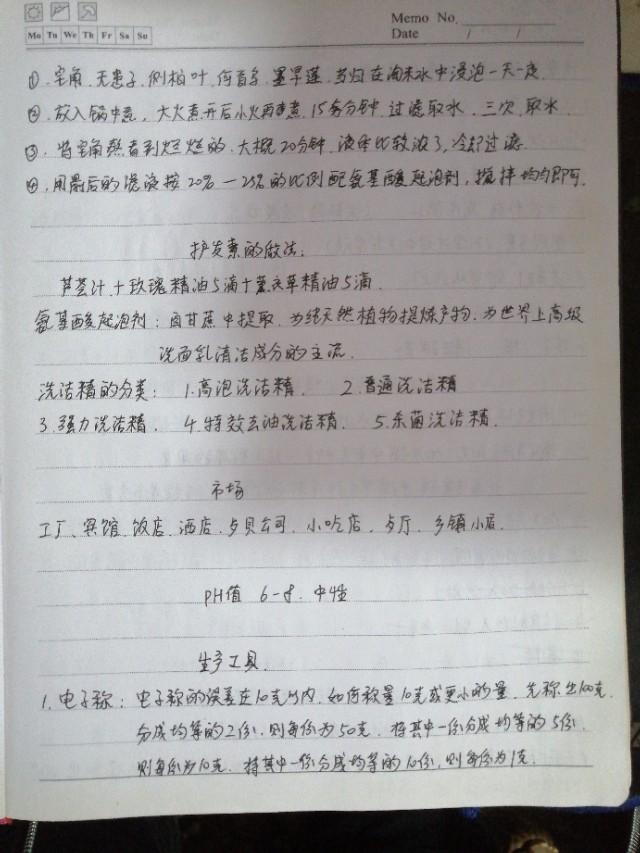 Memo No.
Date / /
Mo Tu We Th Fr Sa Su
①、皂角、无患子、侧柏叶、何首乌、墨旱莲、当归在淘米水中浸泡一天一夜.
②、放入锅中煮,大火煮开后小火再煮,15多分钟,过滤取水,三次,取水.
③、将皂角熬煮到烂烂的,大概20分钟,液体比较浓了,冷却过滤.
④、用最后的滤液按20%—25%的比例配氨基酸起泡剂,搅拌均匀即可.
护发素的做法:
芦荟汁+玫瑰精油5滴+薰衣草精油5滴.
氨基酸起泡剂:由甘蔗中提取,为纯天然植物提炼产物,为世界上高级
洗面乳清洁成分的主流.
洗洁精的分类: 1.高泡洗洁精. 2.普通洗洁精
3.强力洗洁精. 4.特效去油洗洁精. 5.杀菌洗洁精.
市场
工厂、宾馆、饭店、酒店、公司、小吃店、厅、乡镇小店.
PH值 6-8.中性
生产工具
1.电子称:电子称的误差在10克以内,如何称量10克或更小的量,先称出100克,
分成均等的2份,则每份为50克,将其中一份分成均等的5份,
则每份为10克.将其中一份分成均等的10份,则每份为1克.